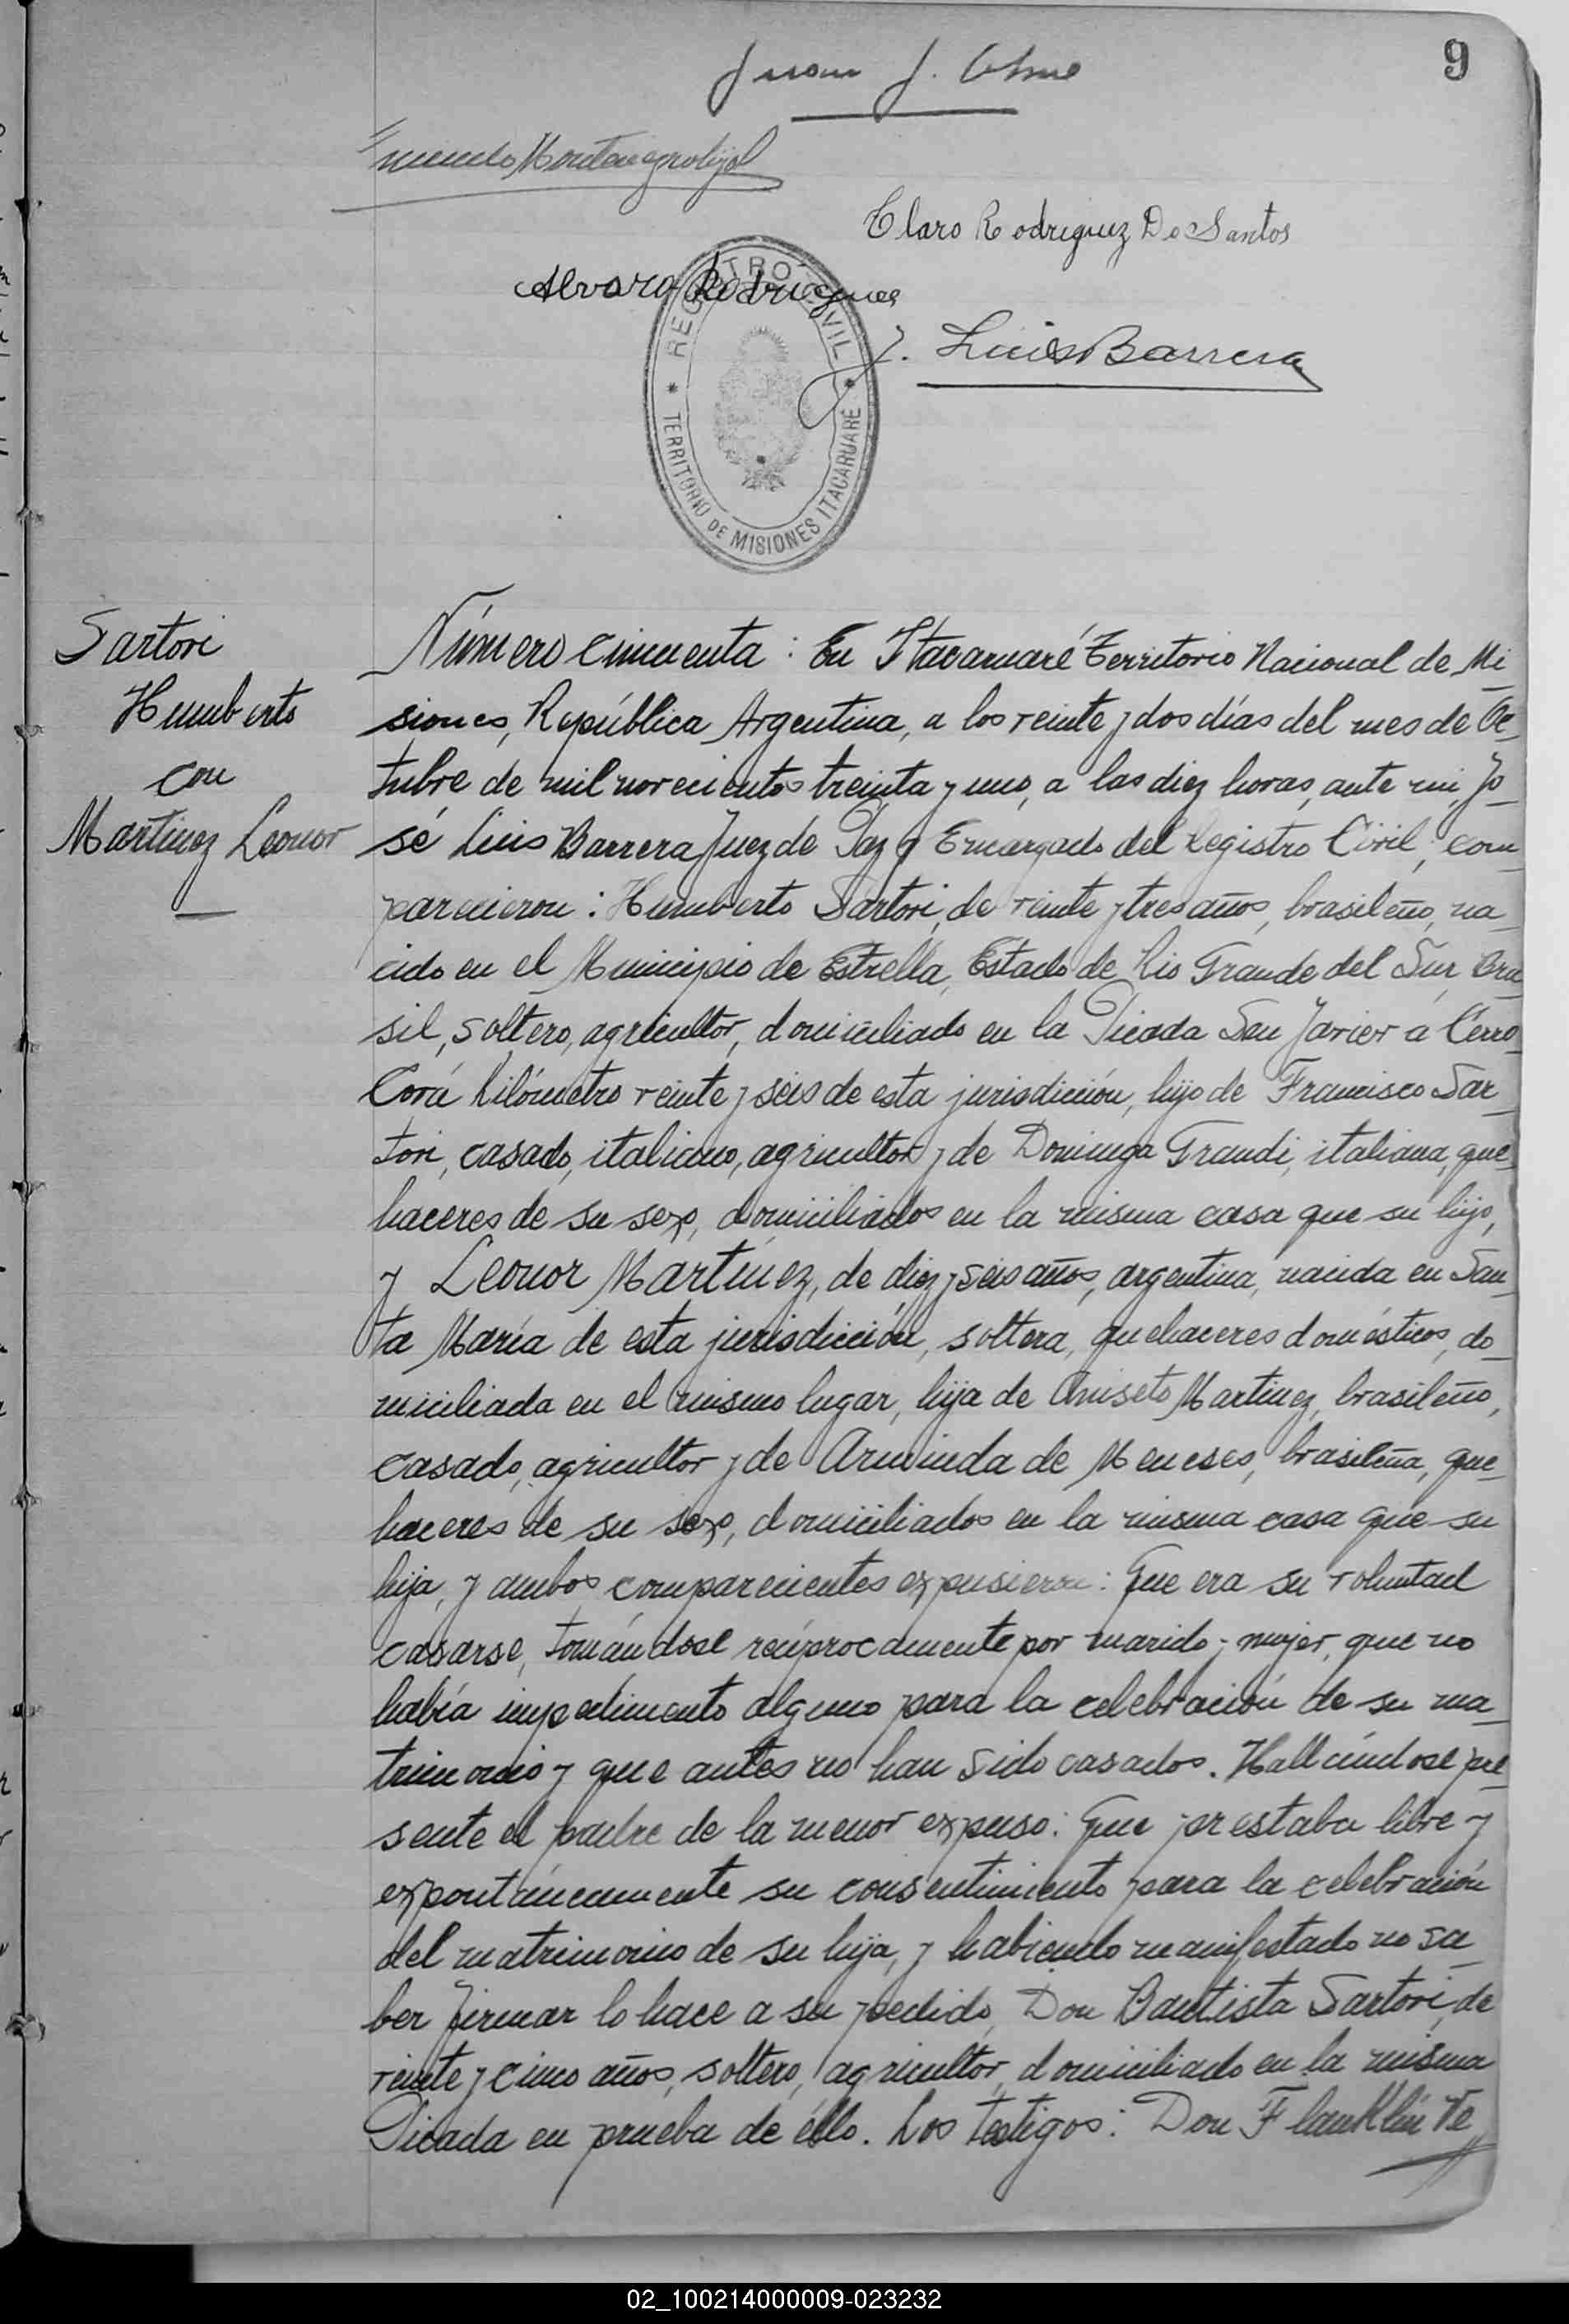 9
Juan J.
Claro Rodriguez Do Santos
Alvaro Rodrigues
J. Luis Barrera
REGISTRO CIVIL
* TERRITORIO DE MISIONES ITACARUARÉ *
Sartori
Humberto
con
Martinez Leonor
Número cincuenta : En Itacaruaré Territorio Nacional de Mi_
siones, República Argentina, a los veinte y dos días del mes de Oc_
tubre de mil novecientos treinta y uno, a las diez horas, ante mi, Jo_
sé Luis Barrera Juez de Paz y Encargado del Registro Civil, com_
parecieron : Humberto Sartori, de veinte y tres años, brasileño, na_
cido en el Municipio de Estrella, Estado de Rio Grande del Sur, Bra_
sil, soltero, agricultor, domiciliado en la Picada San Javier a Cerro_
Corá Kilómetro veinte y seis de esta jurisdicción, hijo de Francisco Sar_
tori, casado, italiano, agricultor y de Dominga Grandi, italiana, que_
haceres de su sexo, domiciliados en la misma casa que su hijo,
y Leonor Martinez, de diez y seis años, argentina, nacida en San_
ta María de esta jurisdicción, soltera, quehaceres domésticos, do_
miciliada en el mismo lugar, hija de Aniseto Martinez, brasileño,
casado, agricultor y de Arminda de Meneses, brasileña, que_
haceres de su sexo, domiciliados en la misma casa que su
hija, y ambos comparecientes expusieron : Que era su voluntad
casarse, tomándose recíprocamente por marido y mujer, que no
había impedimento alguno para la celebración de su ma_
trimonio y que antes no han sido casados. Hallándose pre_
sente el padre de la menor expuso : Que prestaba libre y
expontáneamente su consentimiento para la celebración
del matrimonio de su hija, y habiendo manifestado no sa_
ber firmar lo hace a su pedido, Don Bautista Sartori, de
veinte y cinco años, soltero, agricultor, domiciliado en la misma
Picada en prueba de éllo. Los testigos : Don Flanklin Ve_
02_100214000009-023232